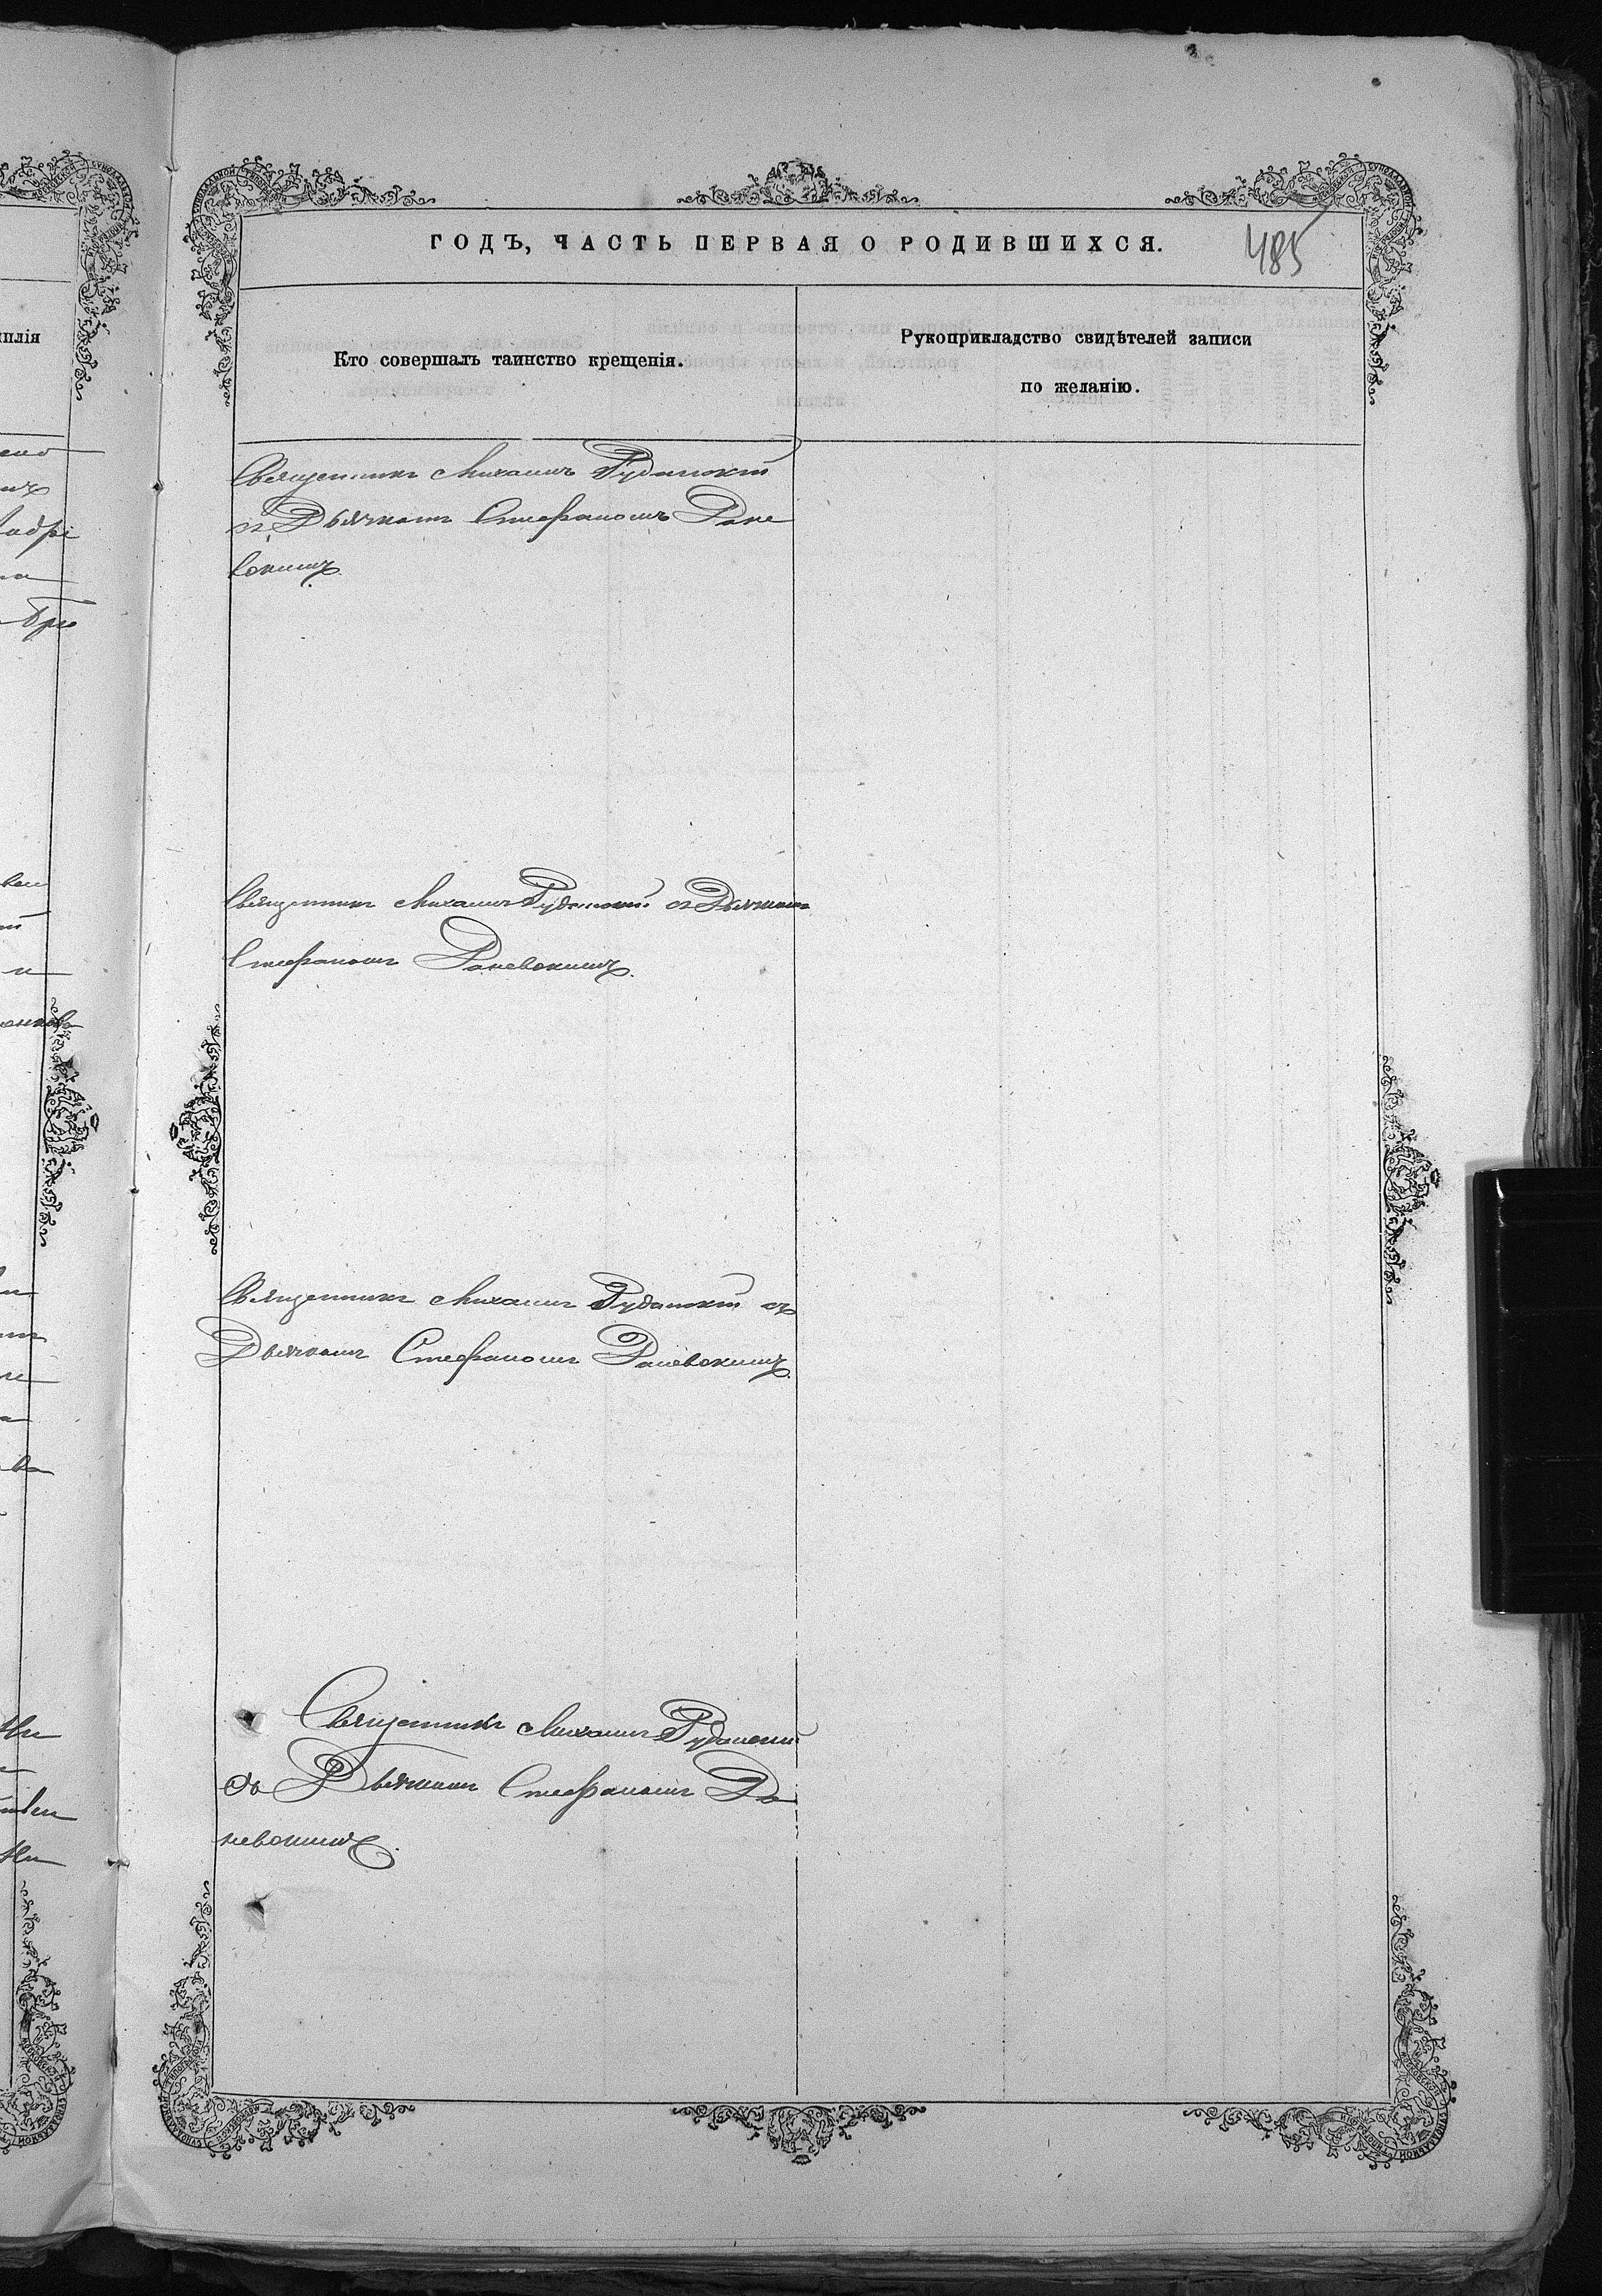 ГОДЪ, ЧАСТЬ ПЕРВАЯ О РОДИВШИХСЯ.
485
Кто совершалъ таинство крещенія.
Рукоприкладство свидѣтелей записи
по желанію.
Священникъ Михаилъ Руданскій
съ Дьячкомъ Стефаномъ Дане
вскимъ.
Священникъ Михаилъ Руданскій съ Дьячкомъ
Стефаномъ Даневскимъ.
Священникъ Михаилъ Руданскій съ
Дьячкомъ Стефаномъ Даневскимъ.
Священникъ Михаилъ Руданскій
съ Дьячкомъ Стефаномъ Да
невскимъ.